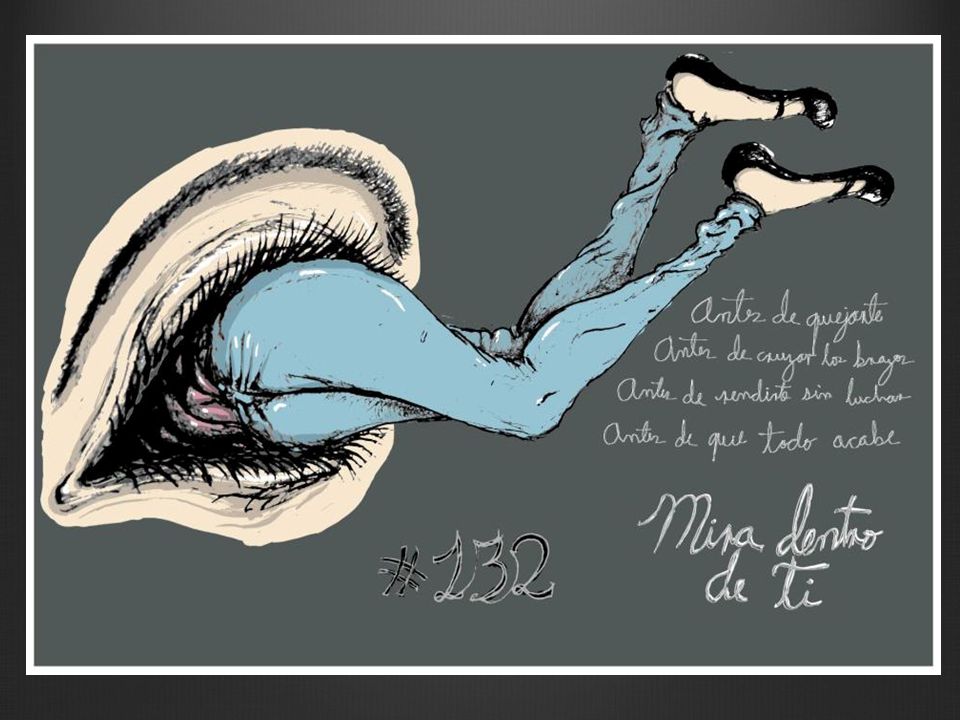 Antes de quejarte
Antes de cruzar los brazos
Antes de rendirte sin luchar
Antes de que todo acabe
Mira dentro
de ti
#132